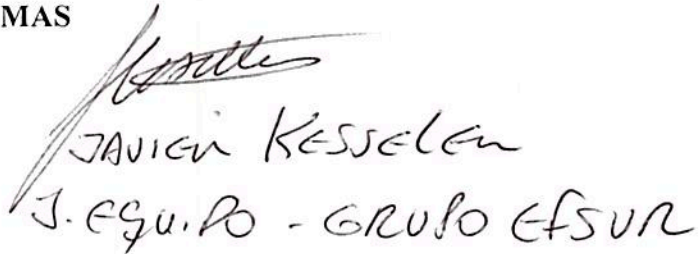 MAS
JAVIER KESSELER
J. EQUIPO - GRUPO EFSUR